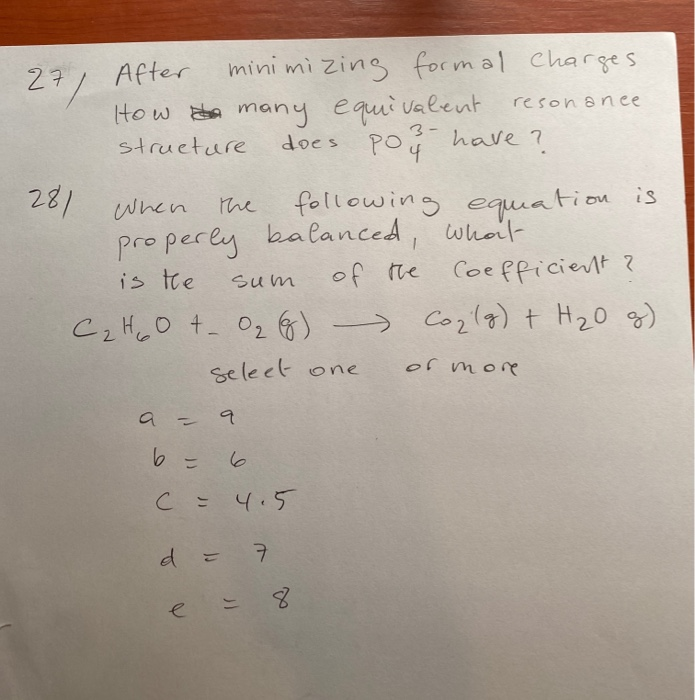 27/ After minimizing formal charges
How many equivalent resonance
structure does PO₄³⁻ have?
28/ When the following equation is
properly balanced, what
is the sum of the coefficient?
C₂H₆O + O₂(g) → CO₂(g) + H₂O g)
select one or more
a = 9
b = 6
c = 4.5
d = 7
e = 8